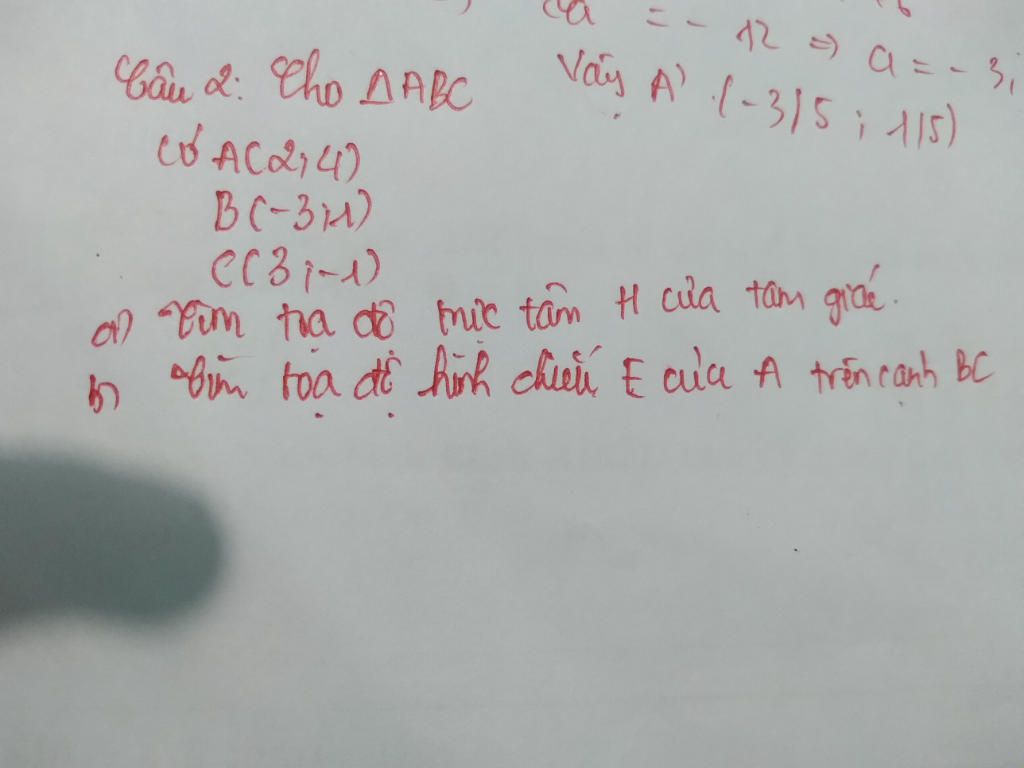 = - 12 => a = - 3,
Vậy A' (-3,5 ; 1,5)
Câu 2: Cho ΔABC
có A(2;4)
B(-3;1)
C(3;-1)
a) Tìm tọa độ trực tâm H của tam giác.
b) Tìm tọa độ hình chiếu E của A trên cạnh BC